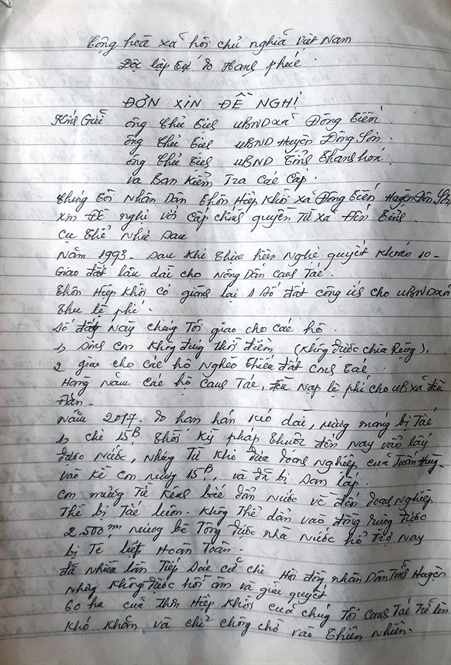 Cộng hoà xã hội chủ nghĩa Việt Nam
Độc lập Tự do Hạnh phúc
ĐƠN XIN ĐỀ NGHỊ
Kính Gửi ông Chủ Tịch UBND xã Đông Tiến
ông Chủ Tịch UBND Huyện Đông Sơn
ông Chủ Tịch UBND Tỉnh Thanh hoá
và Ban Kiểm Tra Các Cấp.
Chúng Tôi Nhân Dân Thôn Hiệp Khởi xã Đông Tiến Huyện Đông Sơn
xin Đề nghị với Cấp chính quyền Từ xã Đến Tỉnh
Cụ Thể Như sau
Năm 1993 - sau khi Thực hiện Nghị quyết Khoán 10 -
Giao đất lâu dài cho Nông Dân Canh Tác.
Thôn Hiệp Khởi có giành lại 1 số đất công ích cho UBND xã
Thu lệ phí
số đất Này chúng Tôi giao cho các hộ
1, sinh con Không đúng Thời điểm (Không được chia Ruộng),
2 giao cho các hộ Nghèo Thiếu đất Canh Tác.
Hàng Năm các hộ Canh Tác, đều Nạp lệ phí cho UB xã đều
Đặn.
Năm 2017. do hạn hán Kéo dài, mương máng bị Tắc
1, chỉ 15B Thời Kỳ pháp Thuộc đến nay vẫn lấy
được Nước, Nhưng Từ khi đưa doanh Nghiệp của Tuấn Hùng
vào Kề Con mương 15B, và đã bị san lấp.
Con mương Từ Kênh bắc dẫn Nước về đến doanh Nghiệp
Thì bị Tắc luôn. Không Thể dẫn vào đồng ruộng được
2.500m mương bê Tông được nhà Nước hỗ Trợ Nay
bị Tê liệt Hoàn Toàn.
đã Nhiều lần Tiếp xúc cử chi Hội đồng nhân Dân Tỉnh Huyện
Nhưng Không được hồi âm và giải quyết
60 ha của Thôn Hiệp Khởi của chúng Tôi Canh Tác Trở lên
Khó khăn và chỉ chông chờ vào Thiên Nhiên.